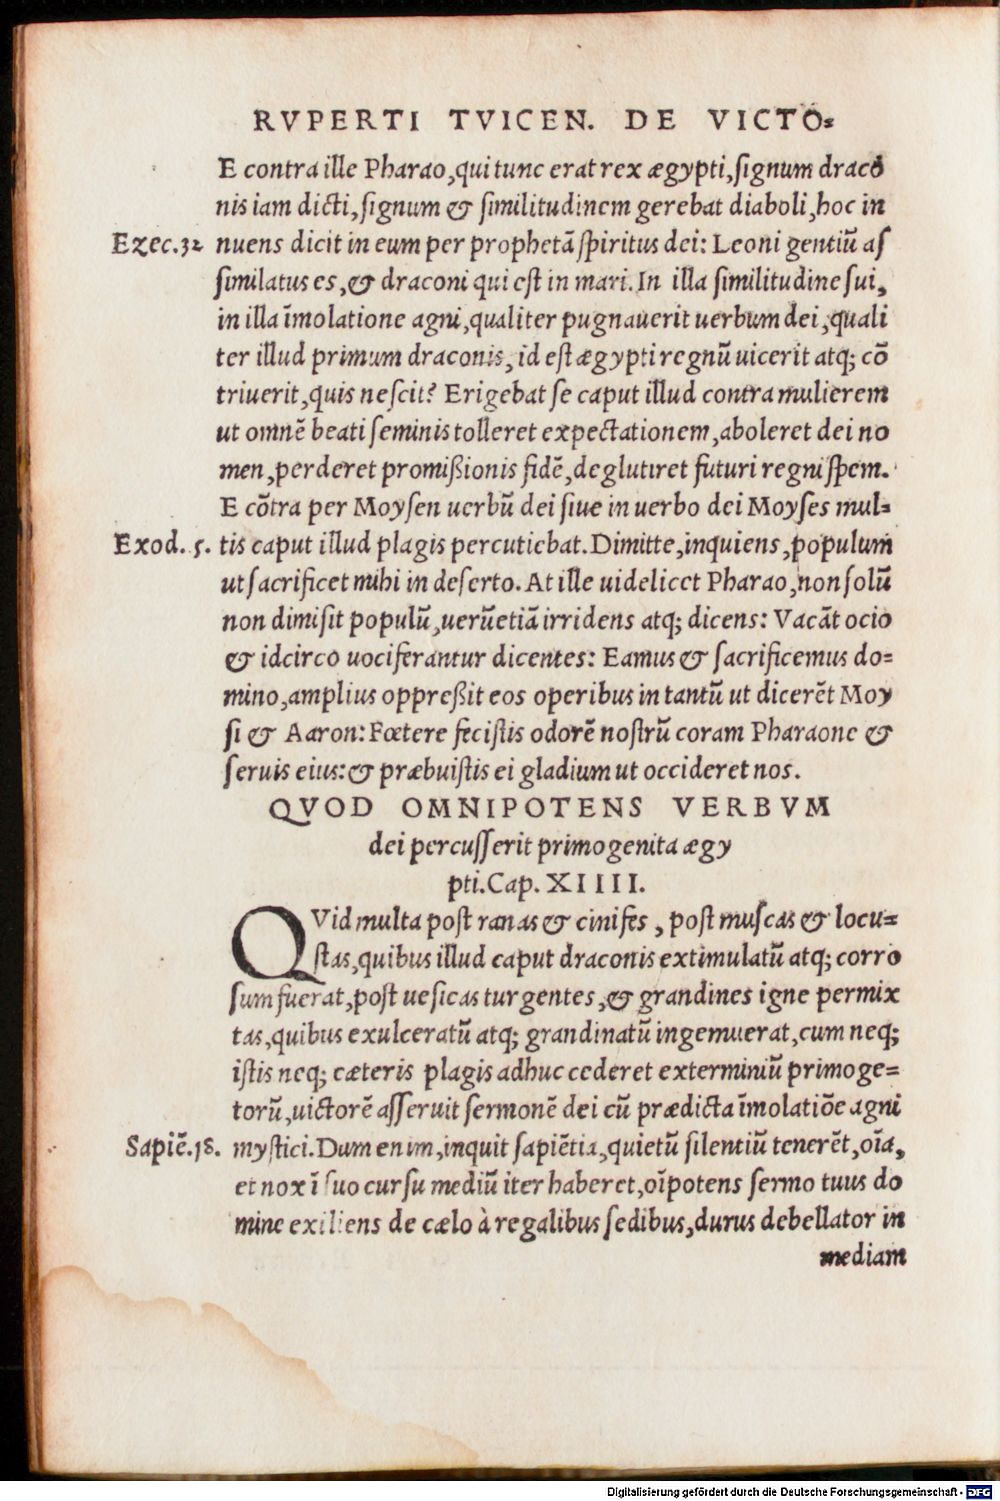 RVPERTI TVICEN. DE VICTO=
E contra ille Pharao, qui tunc erat rex ægypti, ſignum dracō
nis iam dicti, ſignum & ſimilitudinem gerebat diaboli, hoc in
Ezec.32 nuens dicit in eum per prophetā ſpiritus dei: Leoni gentiū aſ
ſimilatus es, & draconi qui eſt in mari. In illa ſimilitudine ſui,
in illa īmolatione agni, qualiter pugnauerit uerbum dei, quali
ter illud primum draconis, id eſt ægypti regnū uicerit atq; cō
triuerit, quis neſcit? Erigebat ſe caput illud contra mulierem
ut omnē beati ſeminis tolleret expectationem, aboleret dei no
men, perderet promißionis fidē, deglutiret futuri regni ſpem.
E cōtra per Moyſen uerbū dei ſiue in uerbo dei Moyſes mul=
Exod. 5. tis caput illud plagis percutiebat. Dimitte, inquiens, populum
ut ſacrificet mihi in deſerto. At ille uidelicet Pharao, non ſolū
non dimiſit populū, uerūetiā irridens atq; dicens: Vacāt ocio
& idcirco uociferantur dicentes: Eamus & ſacrificemus do=
mino, amplius oppreßit eos operibus in tantū ut dicerēt Moy
ſi & Aaron: Fœtere feciſtis odorē noſtrū coram Pharaone &
ſeruis eius: & præbuiſtis ei gladium ut occideret nos.
QVOD OMNIPOTENS VERBVM
dei percuſſerit primogenita ægy
pti. Cap. XIIII.
QVid multa poſt ranas & cinifes, poſt muſcas & locu=
ſtas, quibus illud caput draconis extimulatū atq; corro
ſum fuerat, poſt ueſicas turgentes, & grandines igne permix
tas, quibus exulceratū atq; grandinatū ingemuerat, cum neq;
iſtis neq; cæteris plagis adhuc cederet exterminiū primoge=
torū, uictorē aſſeruit ſermonē dei cū prædicta īmolatiōe agni
Sapiē.18. myſtici. Dum enim, inquit ſapiētia, quietū ſilentiū tenerēt, oīa,
et nox ī ſuo curſu mediū iter haberet, oīpotens ſermo tuus do
mine exiliens de cælo à regalibus ſedibus, durus debellator in
mediam
Digitalisierung gefördert durch die Deutsche Forschungsgemeinschaft - DFG